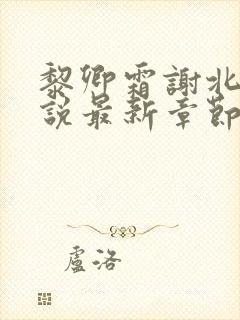 黎卿霜謝北
說最新章節
盧洛